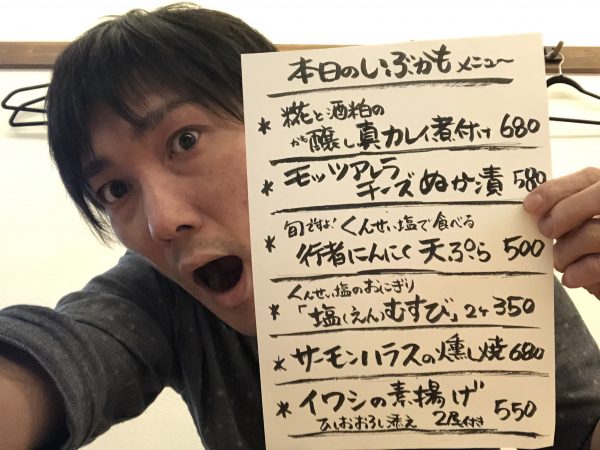 本日のいぶかもメニュー
* 糀と酒粕の
かも醸し真カレイ煮付け 680
* モッツアレラ
チーズぬか漬 580
* 旬ですよ!くんせい塩で食べる
行者にんにく天ぷら 500
* くんせい塩のおにぎり
「塩(えん)むすび」2ヶ 350
* サーモンハラスの燻し焼 680
* イワシの素揚げ 550
ひしおおろし添え 2尾付き